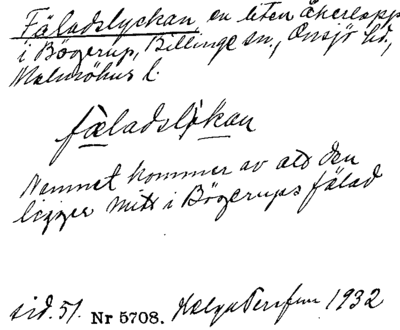 Fäladslyckan en liten åkerlapp
i Bögerup, Billinge sn, Onsjö hd,
Malmöhus l.
fæladslykan
Namnet kommer av att den
ligger mitt i Bögerups fälad
sid. 51. Nr 5708. Helga 1932